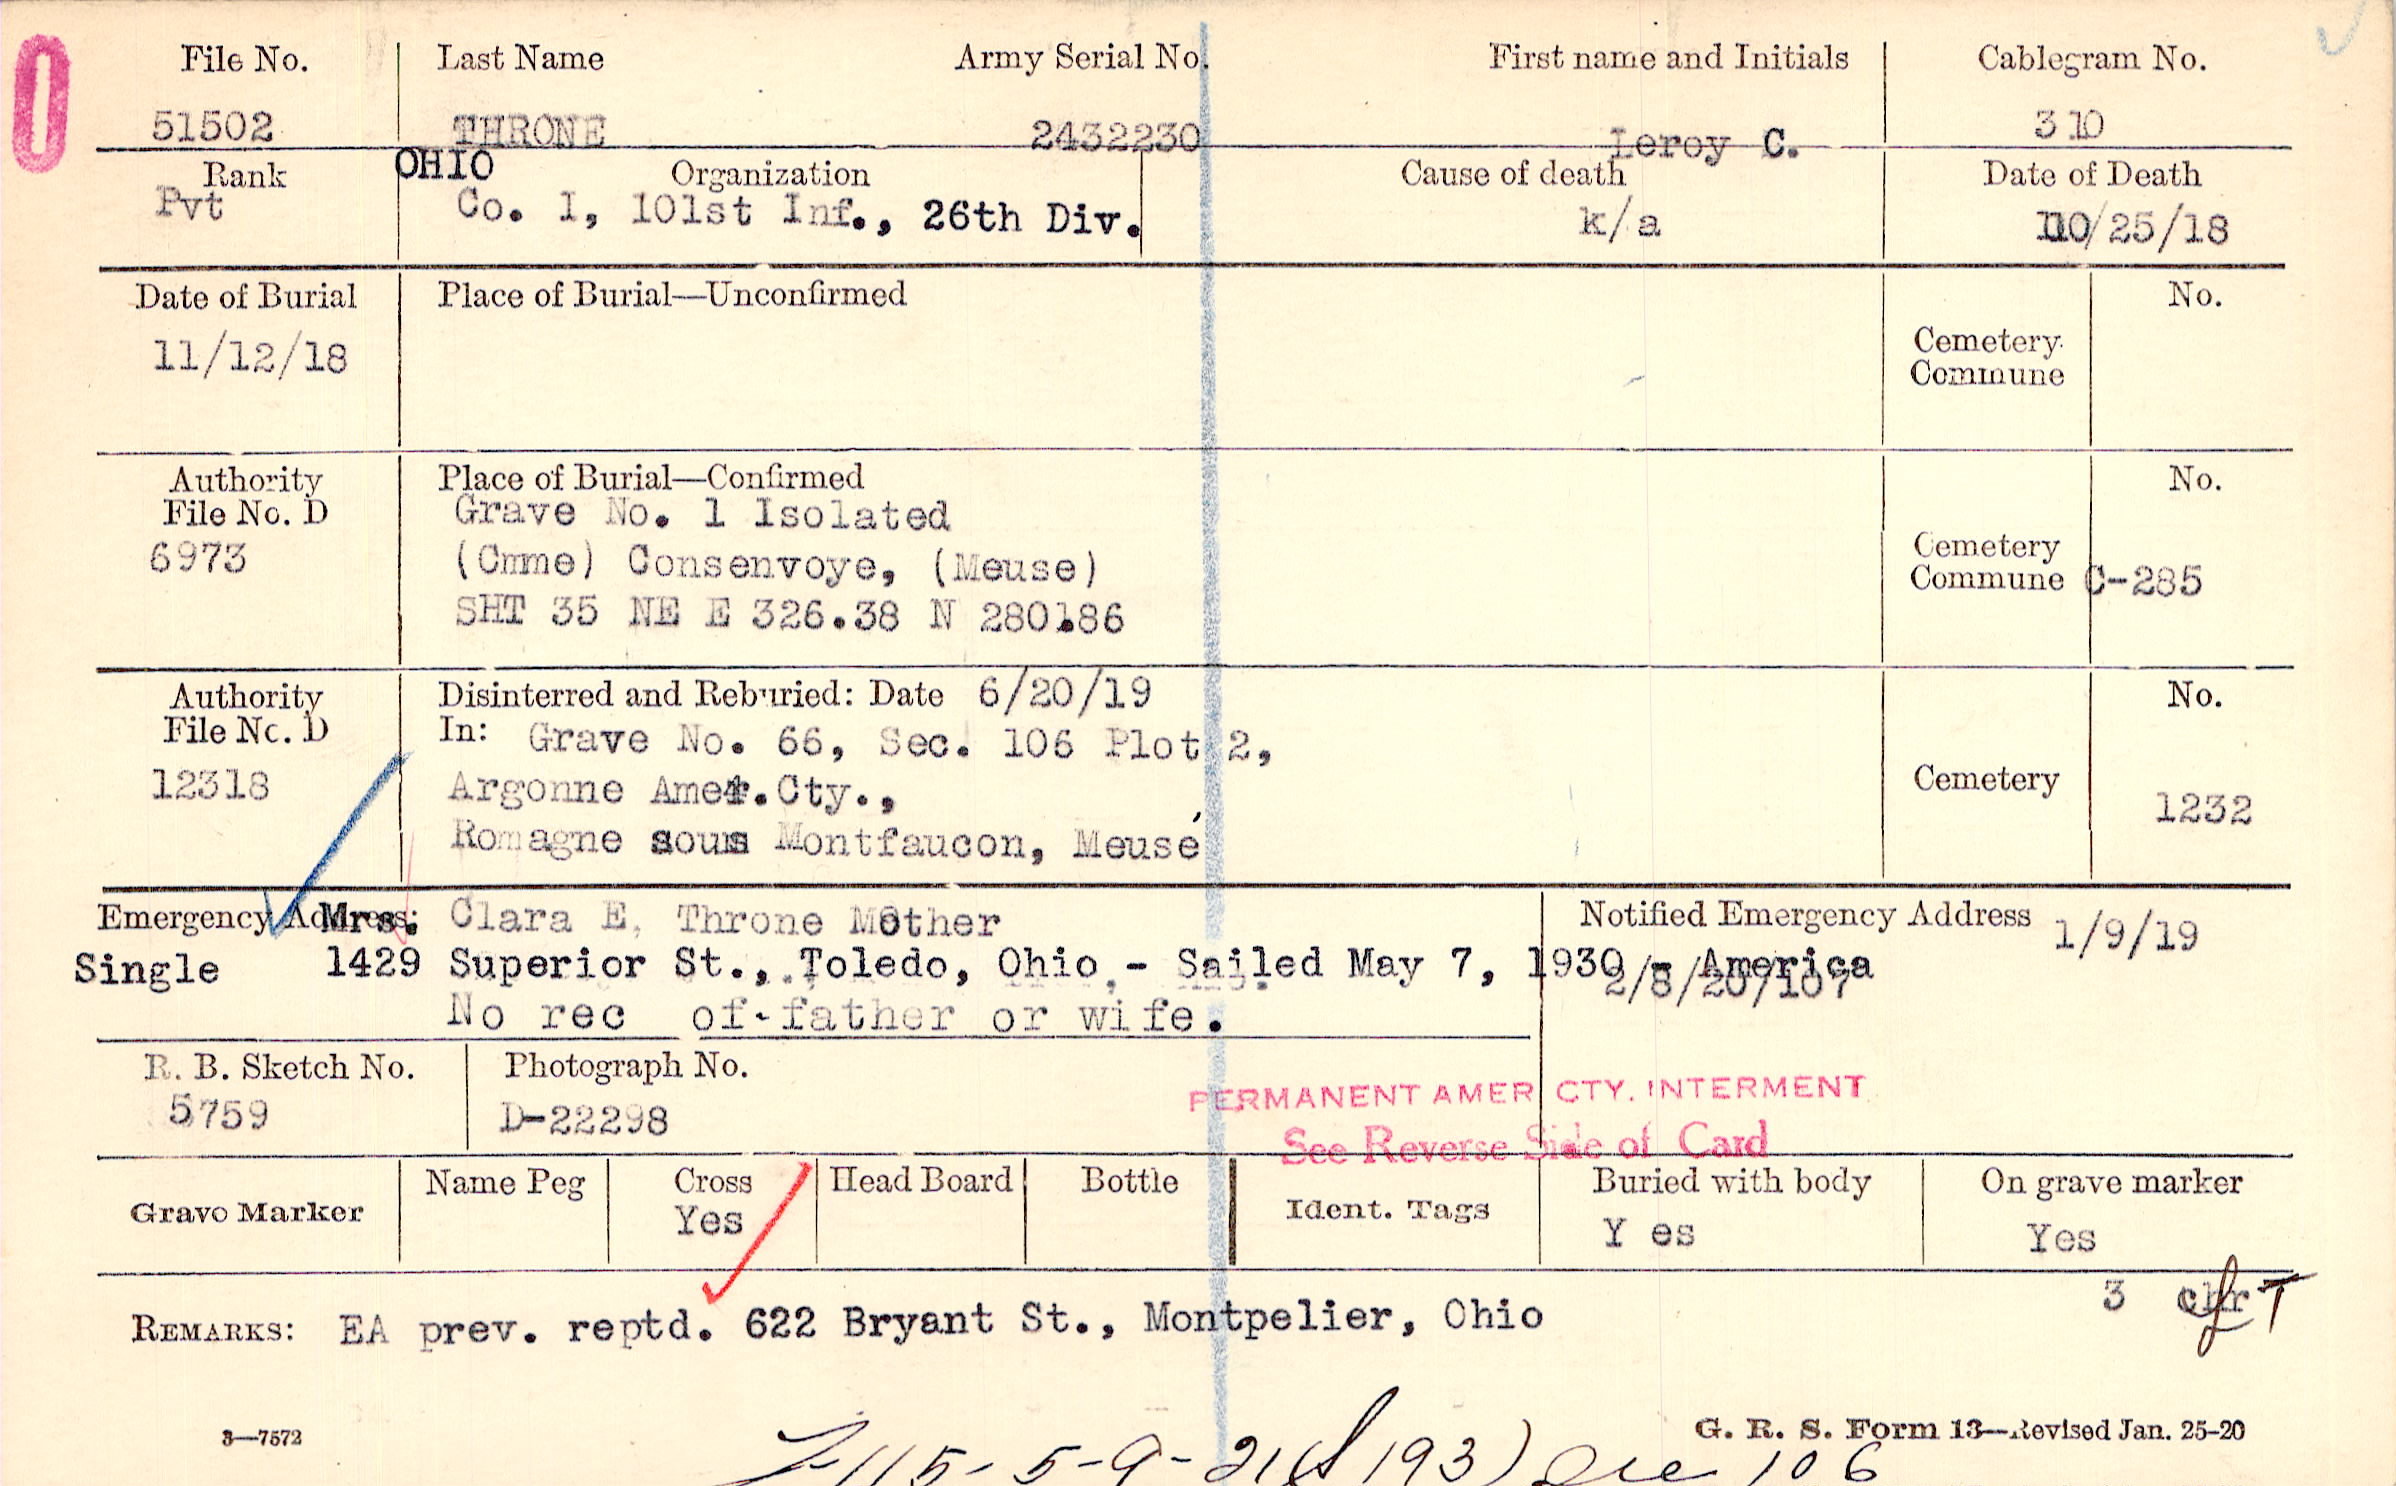 File No. Last Name Army Serial No. First name and Initials Cablegram No.
51502 THRONE 2432230 Leroy C. 310
Rank OHIO Organization Cause of death Date of Death
Pvt Co. I, 101st Inf., 26th Div. k/a 10/25/18
Date of Burial Place of Burial—Unconfirmed No.
11/12/18 Cemetery
Commune
Authority Place of Burial—Confirmed No.
File No. D Grave No. 1 Isolated
6973 (Cmme) Consenvoye, (Meuse) Cemetery
Commune C-285
SHT 35 NE E 326.38 N 280.86
Authority Disinterred and Reburied: Date 6/20/19 No.
File No. D In: Grave No. 66, Sec. 106 Plot 2,
12318 Argonne Amer. Cty., Cemetery 1232
Romagne sous Montfaucon, Meuse
Emergency Address: Mrs. Clara E. Throne Mother Notified Emergency Address 1/9/19
Single 1429 Superior St., Toledo, Ohio - Sailed May 7, 1930 - America
2/8/20/107
No rec of father or wife.
R. B. Sketch No. Photograph No.
5759 D-22298
PERMANENT AMER CTY. INTERMENT
See Reverse Side of Card
Grave Marker Name Peg Cross Head Board Bottle Ident. Tags Buried with body On grave marker
Yes Y es Yes
3 chr
REMARKS: EA prev. reptd. 622 Bryant St., Montpelier, Ohio
3—7572 G. R. S. Form 13—Revised Jan. 25-20
5-9-21 (S 193) 106